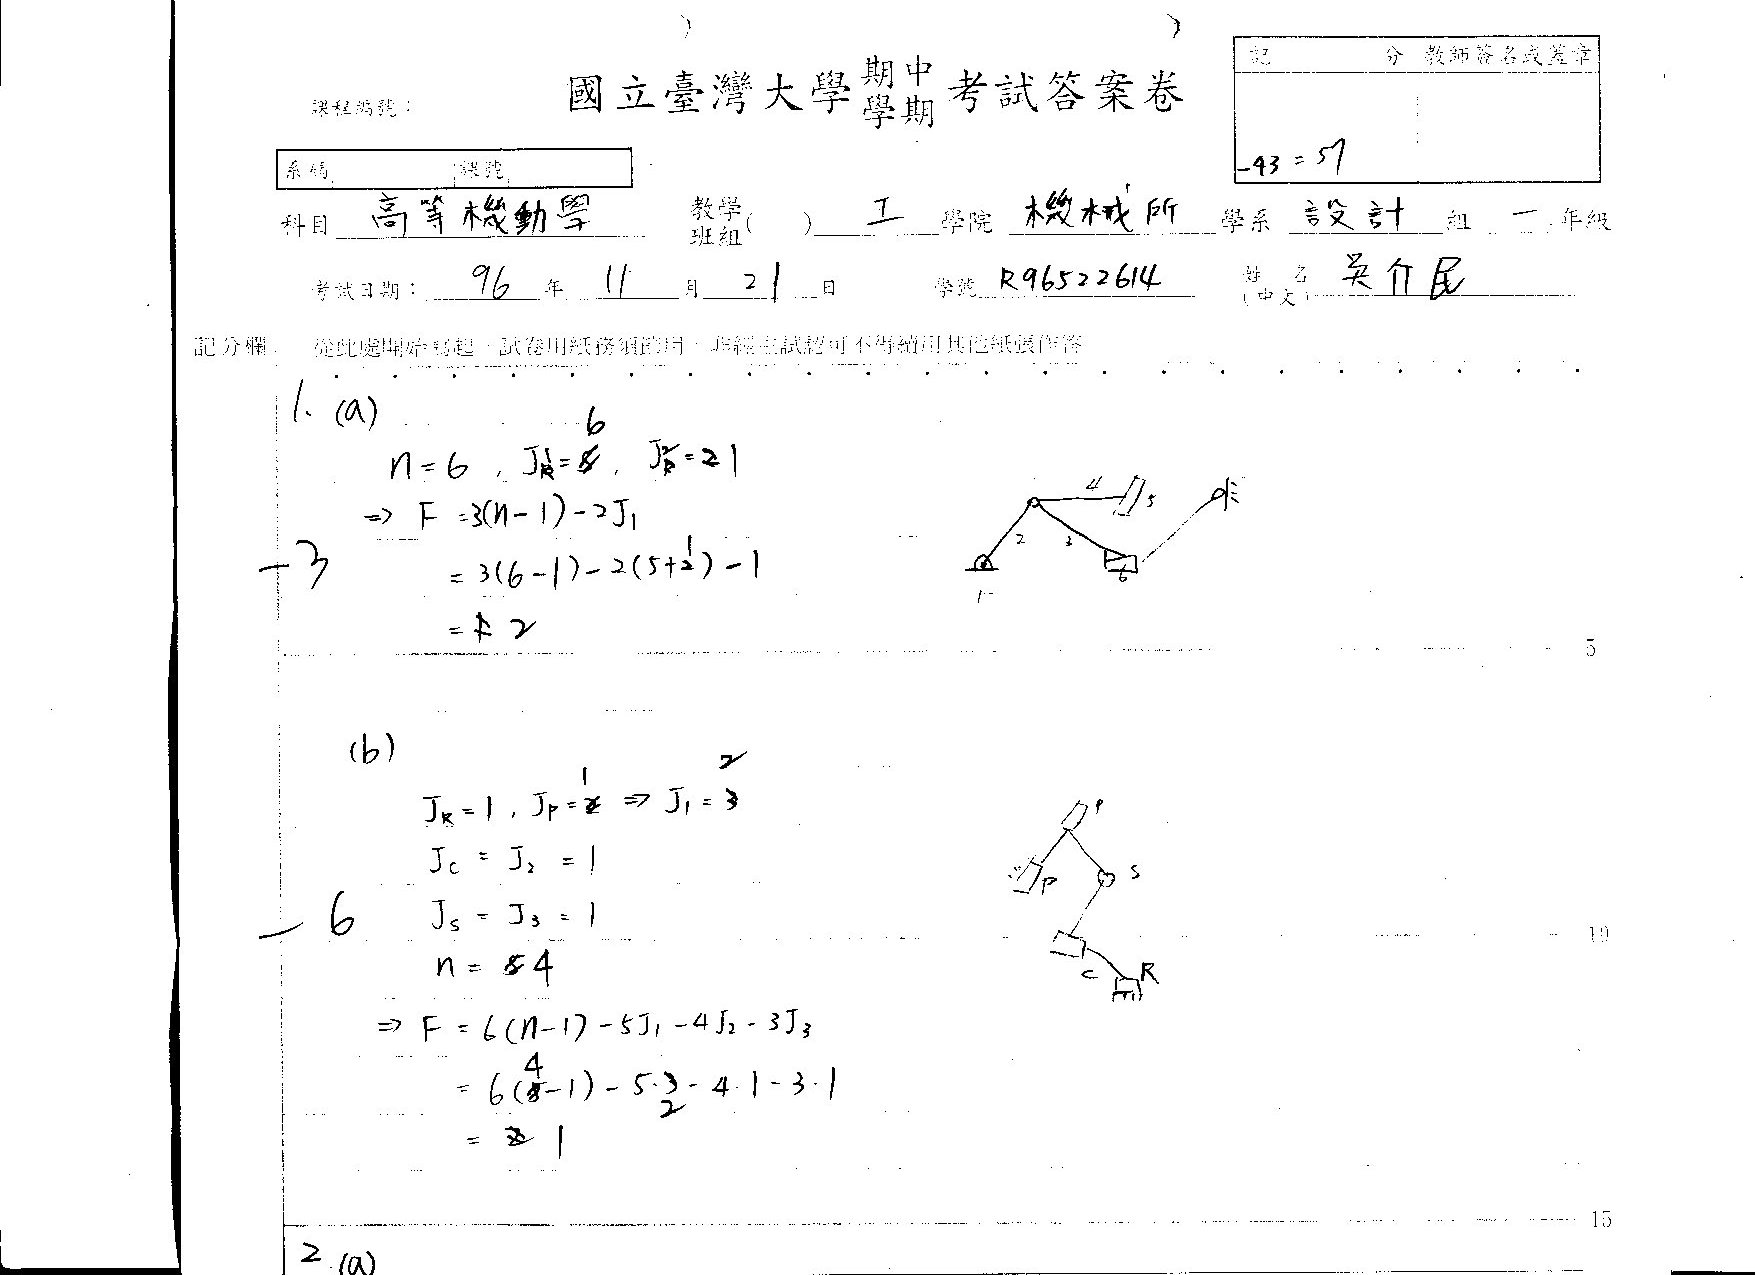 記 分 教師簽名或蓋章
國立臺灣大學 期中 學期 考試答案卷
課程編號：
-43 = 57
系碼 課號
科目 高等機動學 教學班組( ) 工 學院 機械所 學系 設計 組 一 年級
考試日期： 96 年 11 月 21 日 學號 R96522614 姓名(中文) 吳介民
記分欄 從此處開始寫起，試卷用紙務須節用，非經主試認可不得續用其他紙張作答
1. (a)
6
n=6 ,
⇒ F =3(n-1)-2J₁
-3
= 3(6-1)-2(5+1)-1
= 2
4
5
2
3
6
1
5
(b)
2
1
J_R=1, J_P= ⇒ J₁=3
J_C = J₂ = 1
J_S = J₃ = 1
-6
n = 4
P
P
S
C
R
10
⇒ F = 6(n-1)-5J₁-4J₂-3J₃
4
= 6(5-1)-5·3-4·1-3·1
2
= 1
15
2 (a)